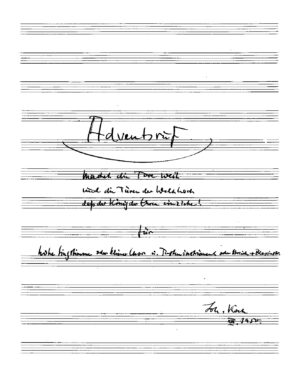 Adventsruf
Machet die Tore weit
und die Türen der Welt hoch
daß der König der Ehren einziehe!
für
hohe Singstimme oder kleinen Chor u. Tasteninstrument oder
Joh. Koch